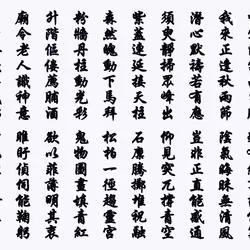 我來正逢秋雨節
陰氣晦昧無清風
潛心默禱若有應
豈非正直能感通
須臾靜掃眾峰出
仰見突兀撐青空
紫蓋連延接天柱
石廩騰擲堆祝融
森然魄動下馬拜
松柏一徑趨靈宮
粉牆丹柱動光彩
鬼物圖畫填青紅
升階傴僂薦脯酒
欲以菲薄明其衷
廟令老人識神意
睢盱偵伺能鞠躬